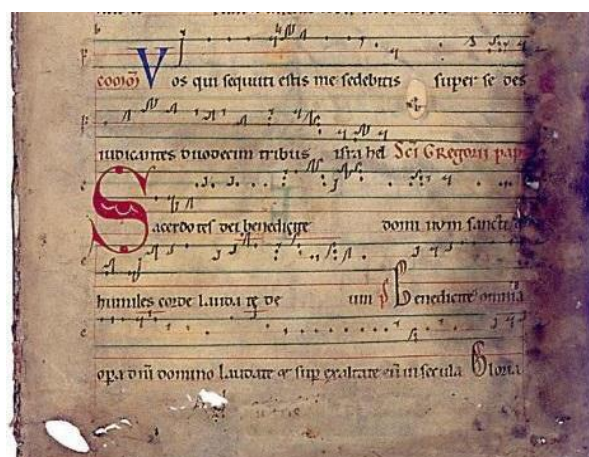 comõ Vos qui sequuti estis me sedebitis super sedes
iudicantes duodecim tribus israhel Sci Gregorii pap
Sacerdotes dei benedicite dominum sancti
humiles corde laudate deum p̃s Benedicite omnia
opera dñi domino laudate et sup exaltate eũ in secula Gloria